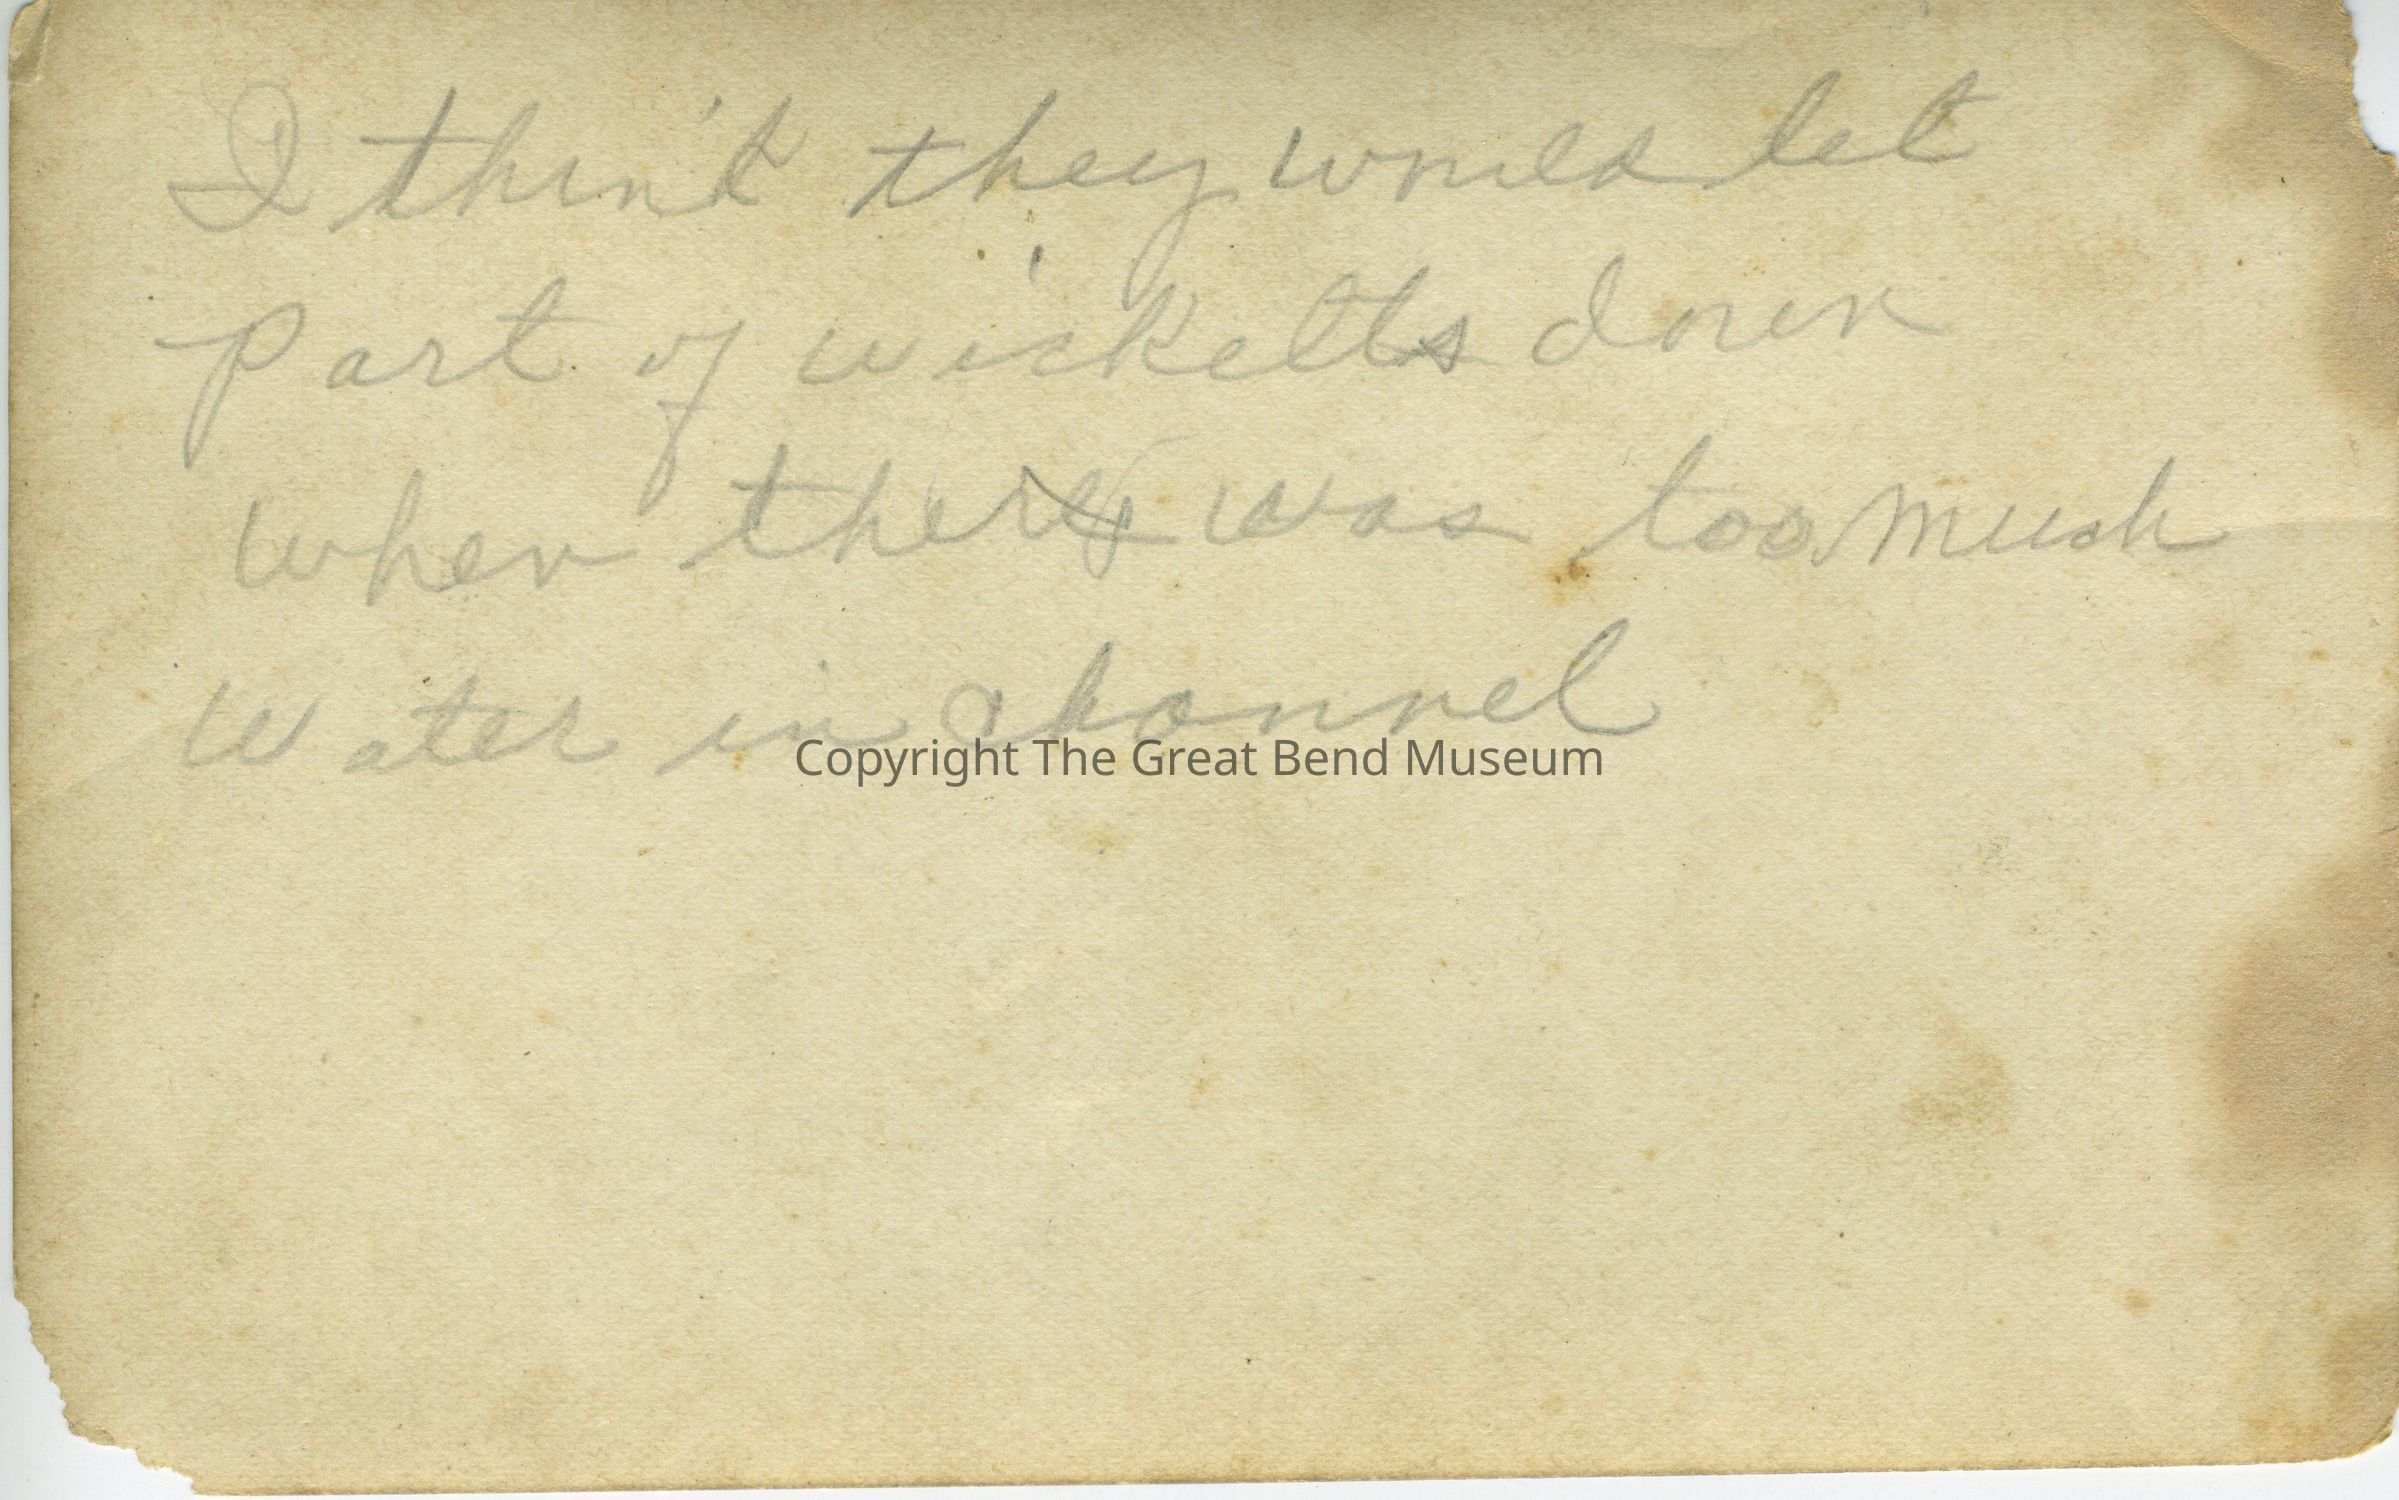 I think they would let
part of wicketts down
when there was too much
water in channel
Copyright The Great Bend Museum